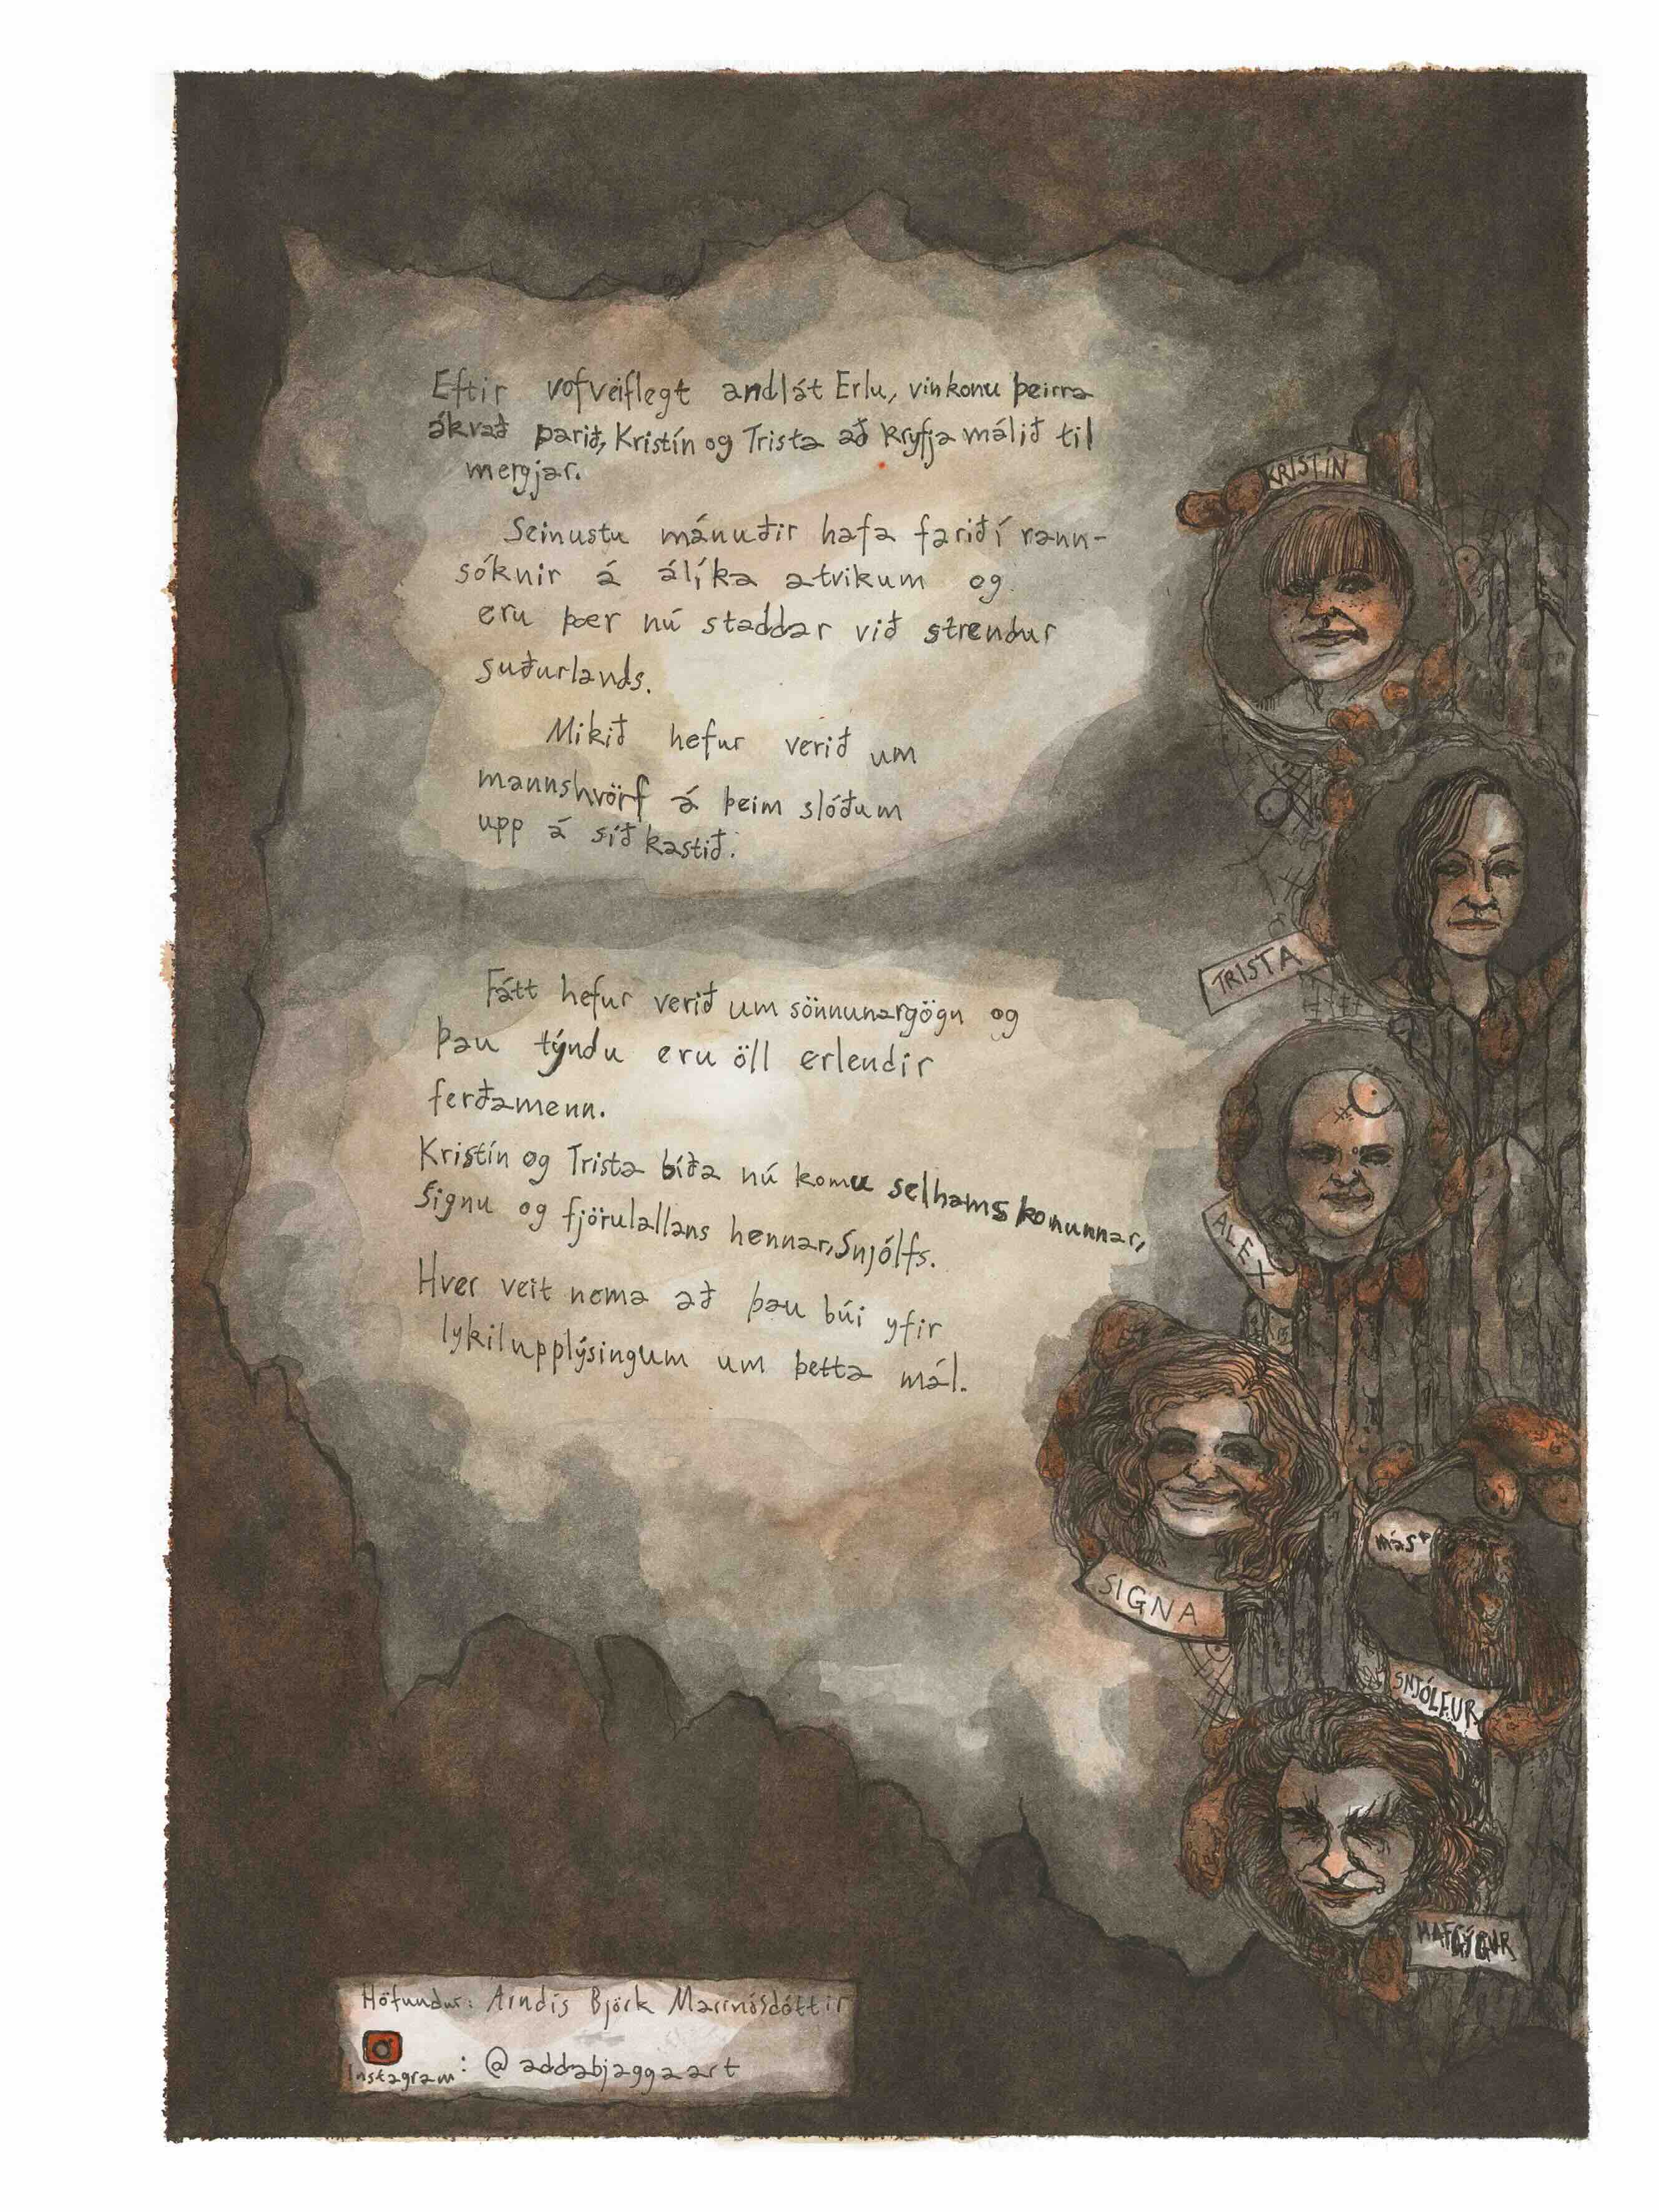 Eftir vofveiflegt andlát Erlu, vinkonu þeirra
ákvað parið, Kristín og Trista að kryfja málið til
mergjar.
Seinustu mánuðir hafa farið í rann-
sóknir á álíka atvikum og
eru þær nú staddar við strendur
suðurlands.
Mikið hefur verið um
mannshvörf á þeim slóðum
upp á síðkastið.
Fátt hefur verið um sönnunargögn og
þau týndu eru öll erlendir
ferðamenn.
Kristín og Trista bíða nú komu selhamskonunnar,
Signu og fjörulallans hennar, Snjólfs.
Hver veit nema að þau búi yfir
lykilupplýsingum um þetta mál.
KRISTÍN
TRISTA
ALEX
SIGNA
más
SNJÓLFUR
HAFGÝGUR
Höfundur: Arndís Björk Marinósdóttir
Instagram: @addabjaggaart